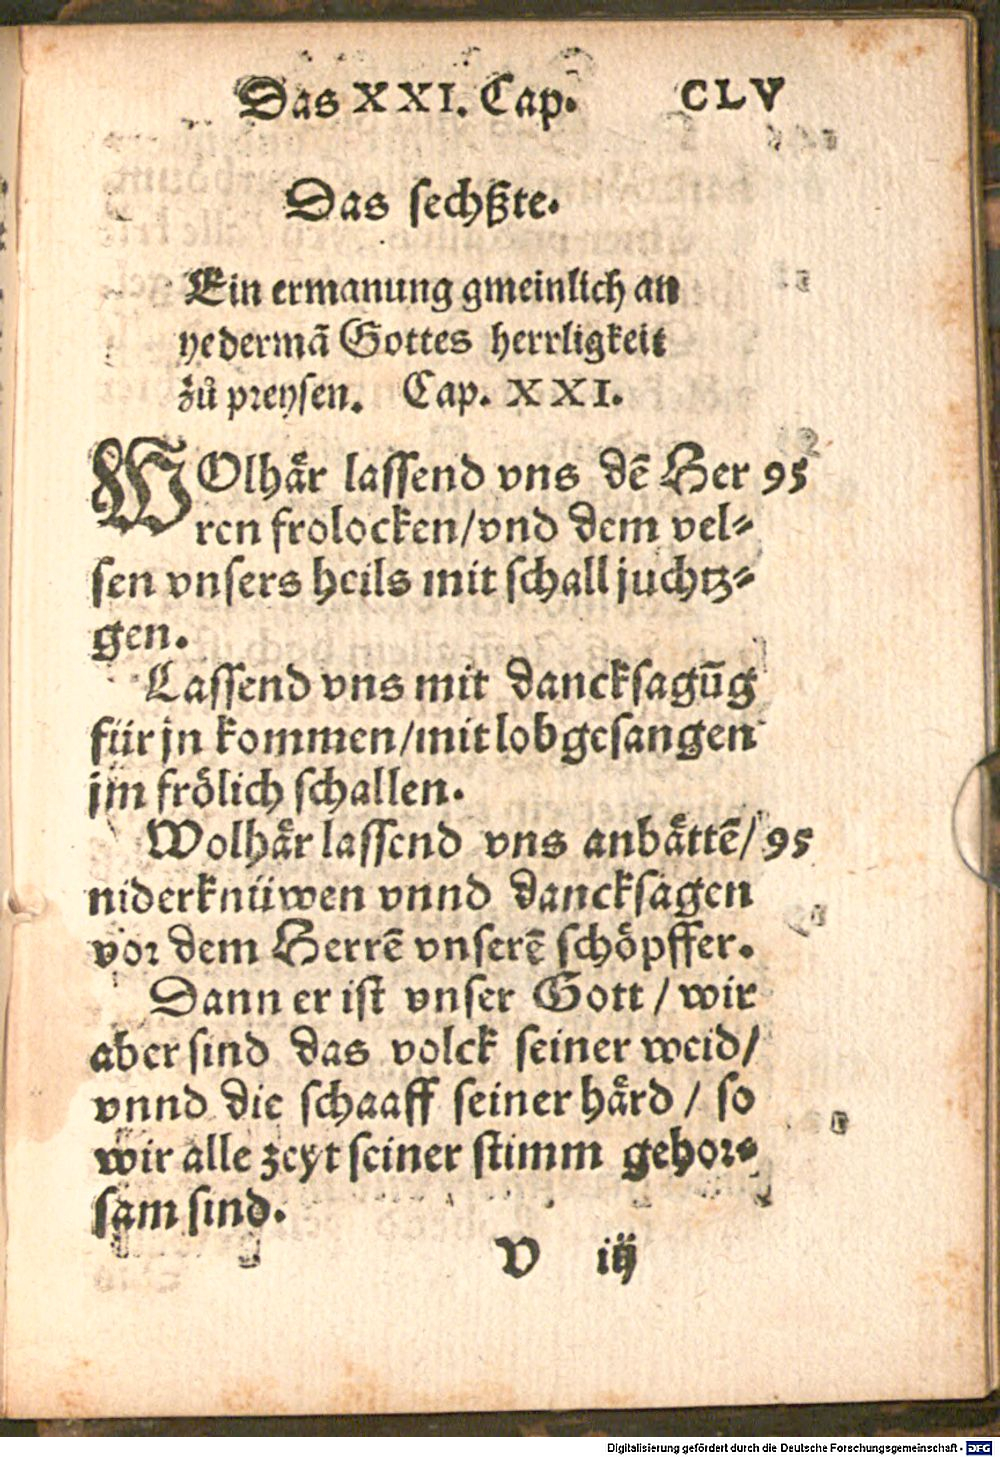 Das XXI. Cap. CLV
Das sechßte.
Ein ermanung gmeinlich an
yedermā Gottes herrligkeit
zů preysen. Cap. XXI.
WOlhaͤr lassend vns dē Her 95
ren frolocken/vnd dem vel⸗
sen vnsers heils mit schall juchtz⸗
gen.
Lassend vns mit dancksagūg
für jn kommen/mit lobgesangen
jm froͤlich schallen.
Wolhaͤr lassend vns anbaͤttē/ 95
niderknüwen vnnd dancksagen
vor dem Herrē vnserē schoͤpffer.
Dann er ist vnser Gott / wir
aber sind das volck seiner weid/
vnnd die schaaff seiner haͤrd / so
wir alle zeyt seiner stimm gehor⸗
sam sind.
V iij
Digitalisierung gefördert durch die Deutsche Forschungsgemeinschaft - DFG